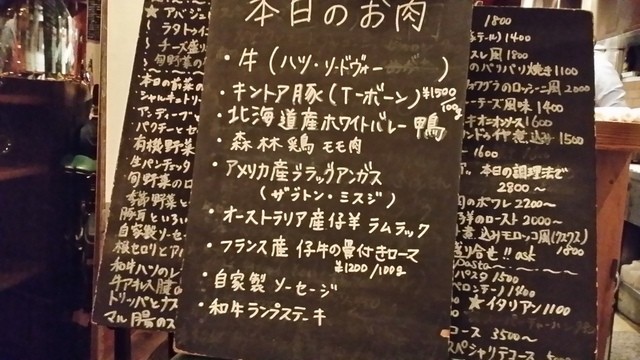 本日のお肉
・牛(ハツ・リードヴォー)
・キントア豚(Tボーン)¥1500
100g
・北海道産ホワイトバレー鴨
・森林鶏 モモ肉
・アメリカ産ブラックアンガス
(ザブトン・ミスジ)
・オーストラリア産仔羊 ラムラック
・フランス産 仔牛の骨付きロース
¥1200/100g
・自家製 ソーセージ
・和牛ランプステーキ
ラタトゥイ
チーズ盛り
旬野菜の
本日の前菜の
シャルキュトリー
パクチーとセ
有機野菜
生パンチェッタ
旬野菜のロ
季節野菜と
自家製ソーセ
根セロリとア
和牛ハツのレ
牛アキレス腱の
トリッパとナス
マル腸のス
1800
1400
1800
のパリパリ焼き1100
フォアグラのロッシーニ風2000
風味1400
1600
煮込み1500
1600
本日の調理法で
2800〜
のポワレ2200〜
のロースト2000〜
煮込みモロッコ風(クスクス)
1800
盛り合せ!! ask
Pasta
パスタ1500
ペペロンチーノ1400
★イタリアン1100
コース 3500〜
スペシャリテコース